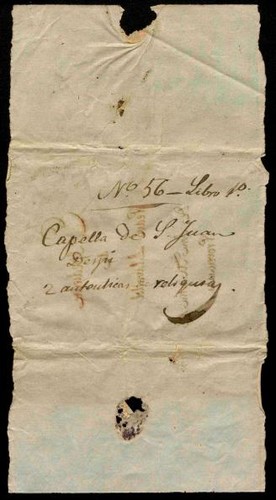 Nº 56 — Libro 1º.
Capella de S Juan
Despi
2 autenticas reliquias.